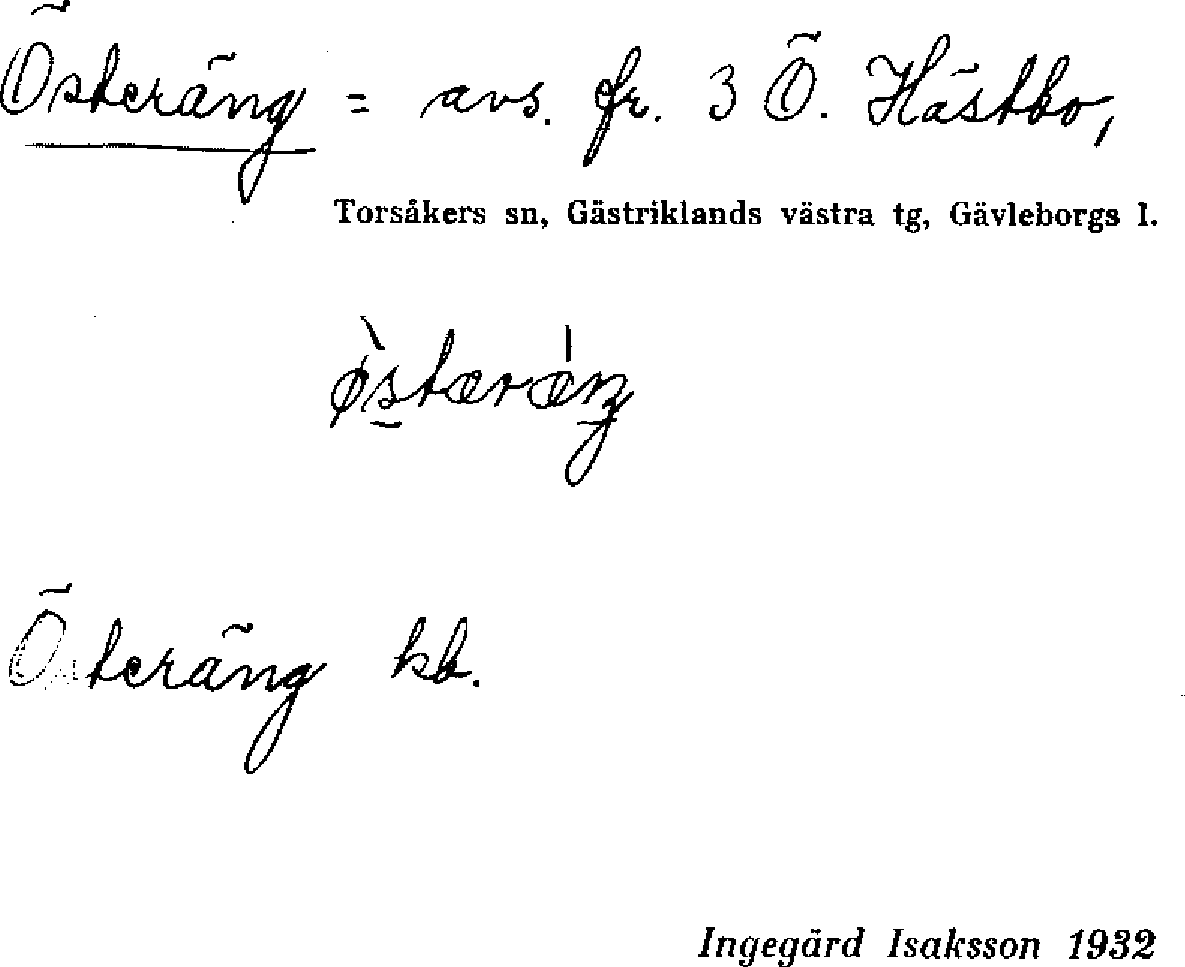 Österäng = avs. fr. 3 Ö. Hästbo,
Torsåkers sn, Gästriklands västra tg, Gävleborgs l.
Österäng kb.
Ingegärd Isaksson 1932